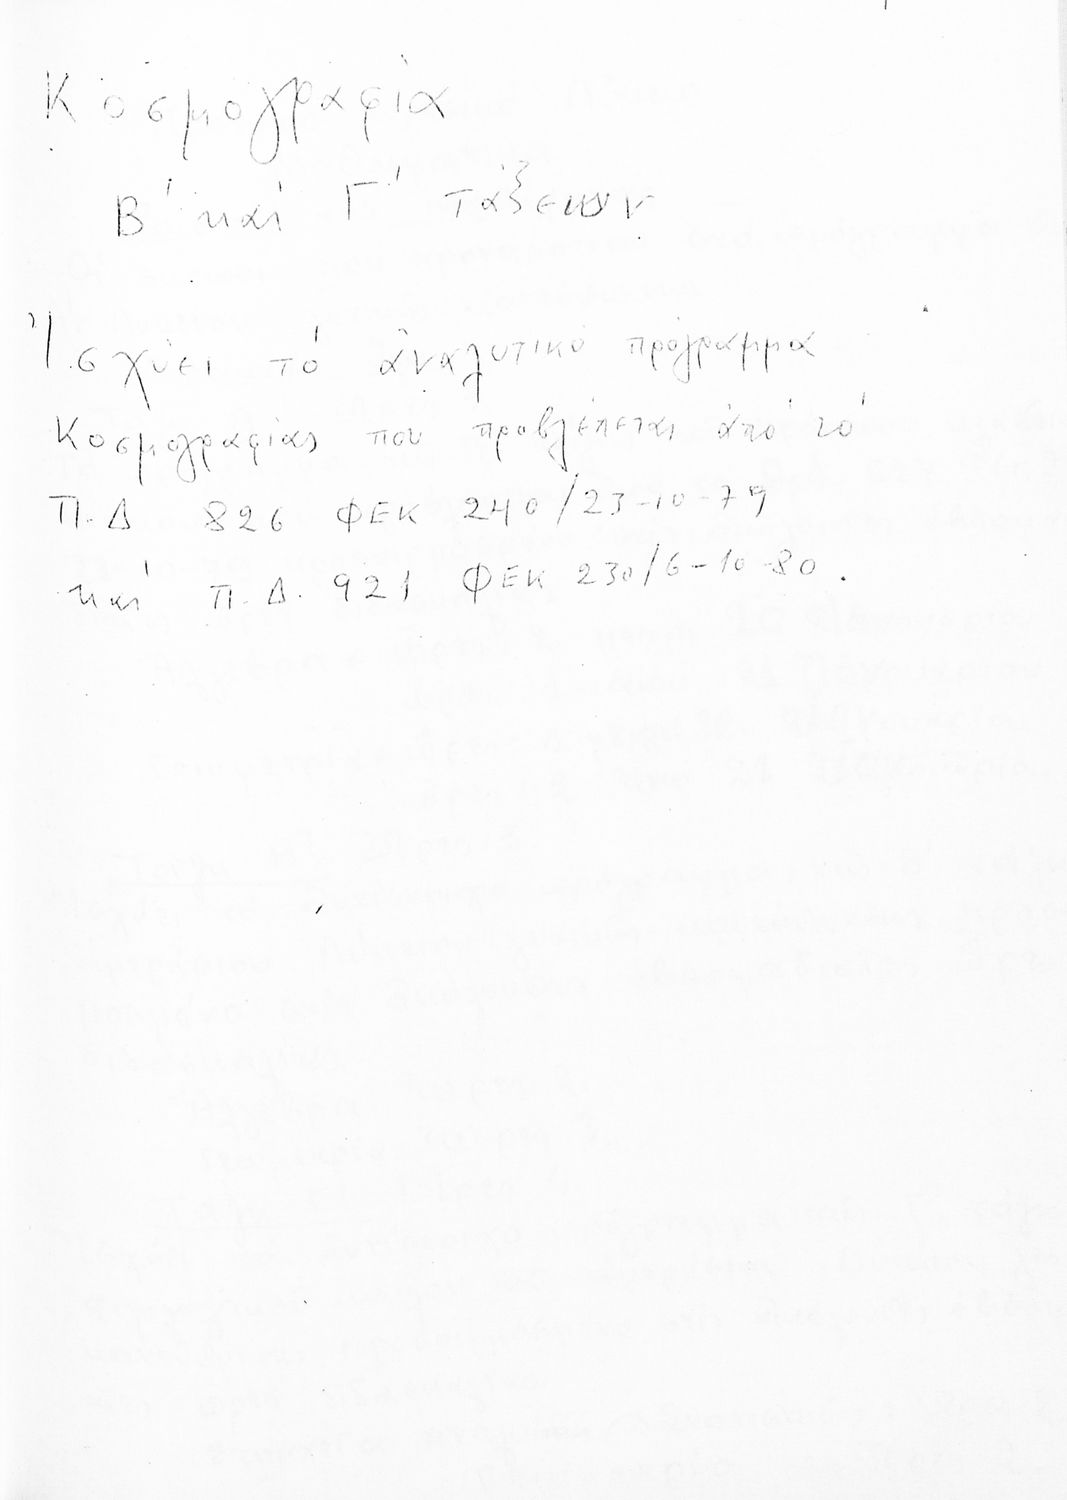 Κοσμογραφία
Β' καί Γ' τάξεων
Ἰσχύει τό ἀναλυτικό πρόγραμμα
Κοσμογραφίας που προβλέπεται ἀπό τό
Π.Δ 826 ΦΕΚ 240/23-10-79
καί Π.Δ. 921 ΦΕΚ 230/6-10-80.